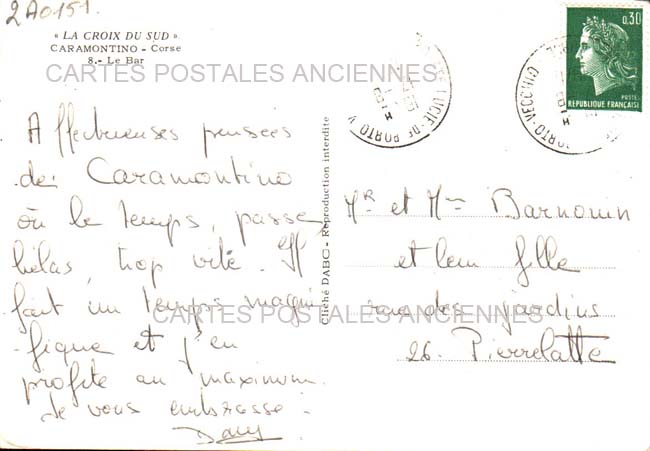 2A0151.
« LA CROIX DU SUD »
CARAMONTINO - Corse
8. - Le Bar
CARTES POSTALES ANCIENNES
Affectueuses pensées
de Caramontino
où le temps, passe,
hélas, trop vite. Il
fait un temps magni
fique et j'en
profite au maximum.
Je vous embrasse.
Dany
Cliché DABC - Reproduction interdite
LUCIE DE PORTO-V
PORTO-VECCHIO
0,30
POSTES
RÉPUBLIQUE FRANÇAISE
Mr et Mme Barnouin
et leur fille
rue des jardins
26. Pierrelatte
CARTES POSTALES ANCIENNES